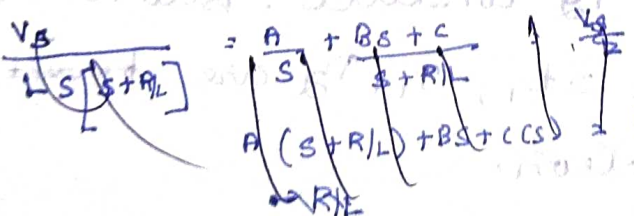 V_B / L S[S + R/L] = A/S + BS + C / S + R/L
A (S + R/L) + BS + C (S) =
R/L